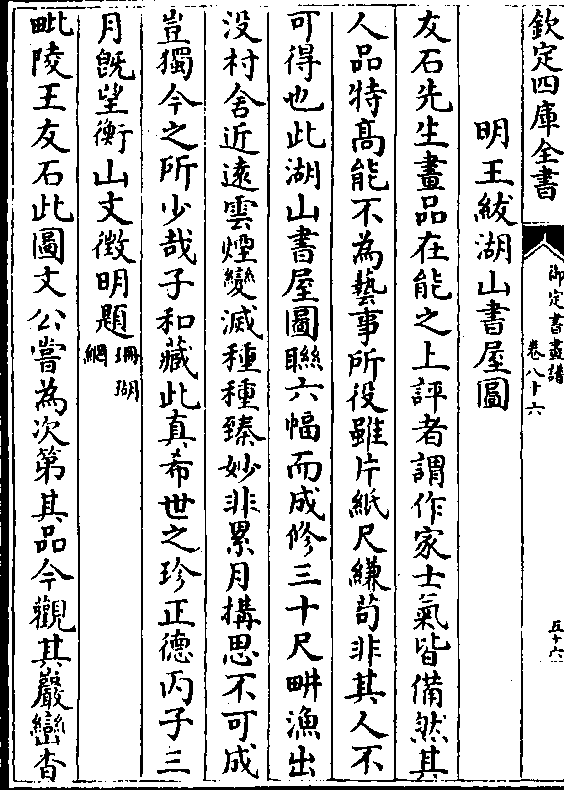 欽定四庫全書
御定書畫譜
卷八十六
五十六
明王紱湖山書屋圖
友石先生畫品在能之上評者謂作家士氣皆備然其
人品特髙能不為藝事所役雖片紙尺縑茍非其人不
可得也此湖山書屋圖聯六幅而成修三十尺畊漁出
没村舍近逺雲煙變滅種種臻妙非累月搆思不可成
豈獨今之所少哉子和藏此真希世之珍正德丙子三
月旣望衡山文徴明題珊瑚網
毗陵王友石此圖文公嘗為次第其品今觀其巖巒杳